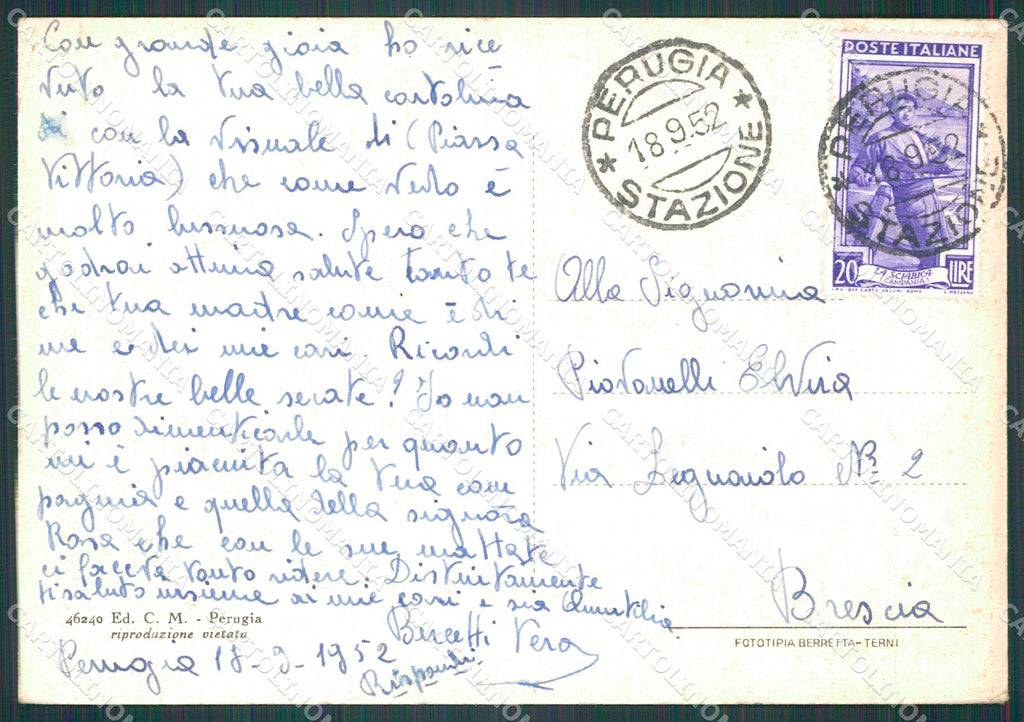 Con grande gioia ho rice
vuto la tua bella cartolina
con la visuale di (Piazza
Vittoria) che come vedo è
molto luminosa. Spero che
godrai ottima salute tanto te
che tua madre come è di
me e dei mie cari Ricordi
le nostre belle serate? Io non
posso dimenticarle per quanto
mi è piaciuta la tua com
pagnia e quella della signora
Rosa che con le sue mattate
ci faceva tanto ridere. Distintamente
ti saluto insieme ai mie cari e zia
Bircetti Vera
Perugia 18-9-1952
Rispondi
46240 Ed. C. M. - Perugia
riproduzione vietata
PERUGIA
18.9.52
STAZIONE
POSTE ITALIANE
PERUGIA
18.9.52
STAZIONE
20 LIRE
LA SCIABICA
CAMPANIA
Alla Signorina
Piovanelli Elvira
Via Legnaiolo N° 2
Brescia
FOTOTIPIA BERRETTA-TERNI
CARTOLINOMANIA